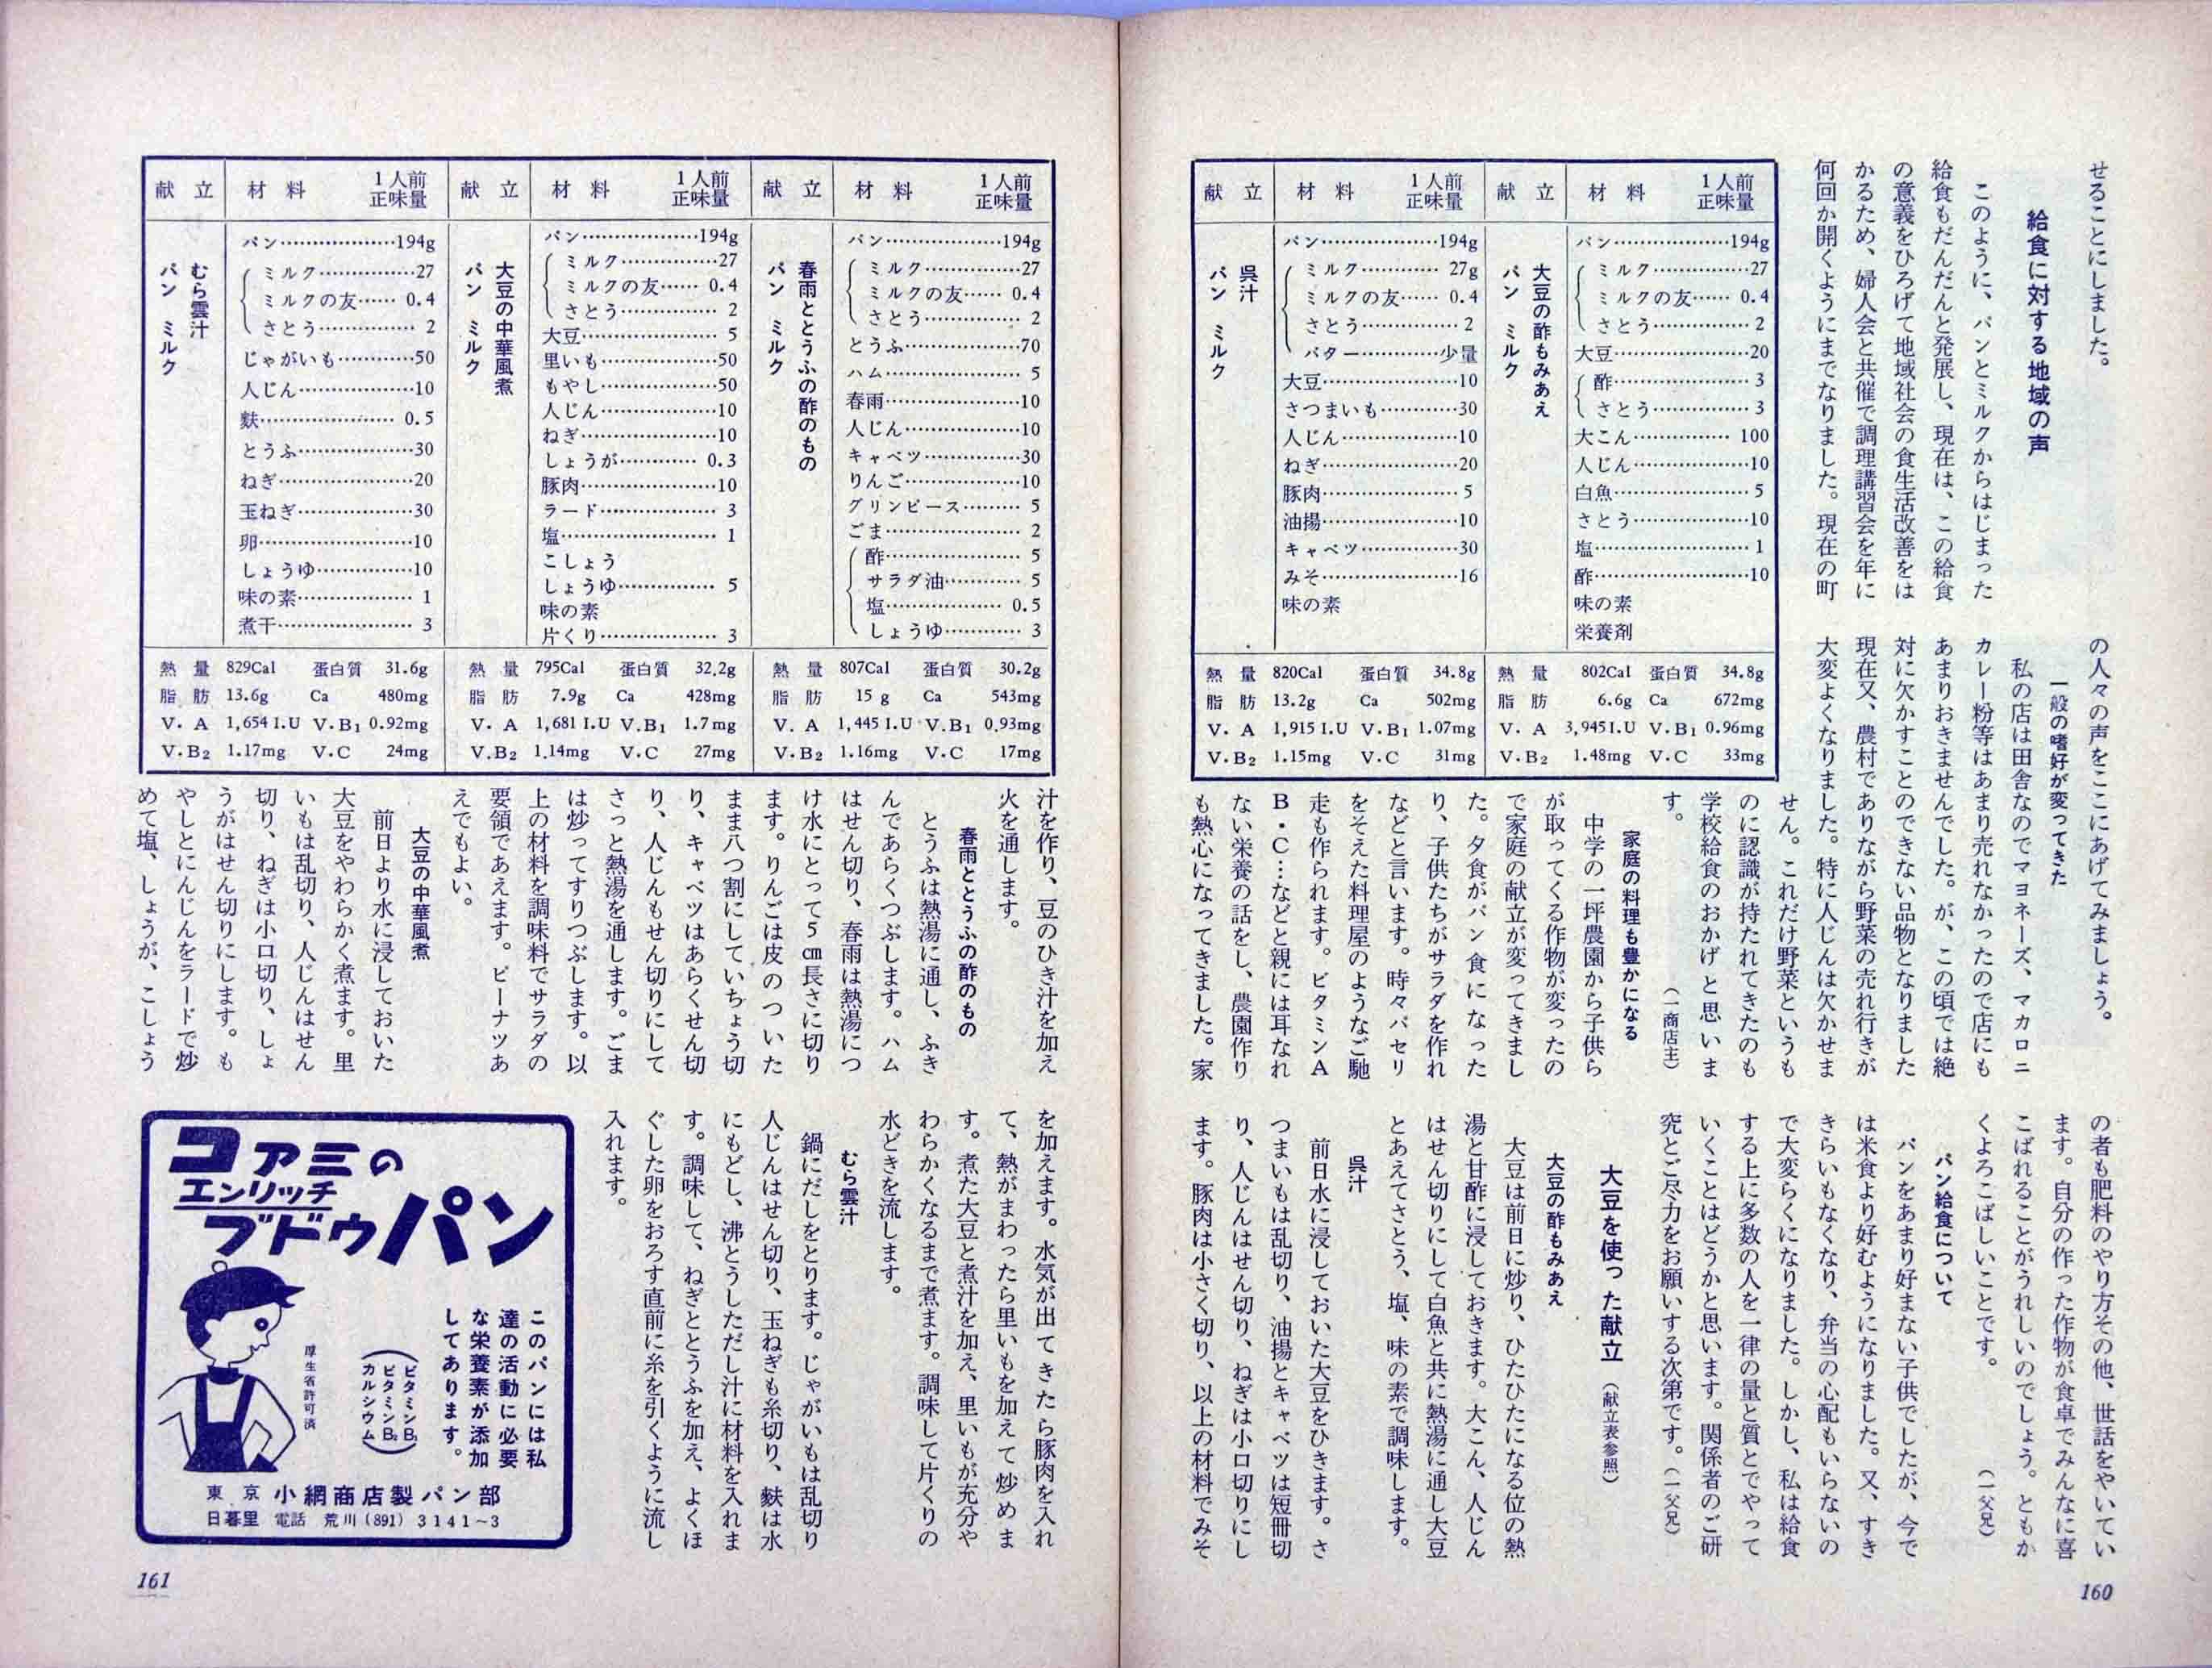 せることにしました。
給食に対する地域の声
このように、パンとミルクからはじまった
給食もだんだんと発展し、現在は、この給食
の意義をひろげて地域社会の食生活改善をは
かるため、婦人会と共催で調理講習会を年に
何回か開くようにまでなりました。現在の町
の人々の声をここにあげてみましょう。
一般の嗜好が変ってきた
私の店は田舎なのでマヨネーズ、マカロニ
カレー粉等はあまり売れなかったので店にも
あまりおきませんでした。が、この頃では絶
対に欠かすことのできない品物となりました
現在又、農村でありながら野菜の売れ行きが
大変よくなりました。特に人じんは欠かせま
せん。これだけ野菜というも
のに認識が持たれてきたのも
学校給食のおかげと思いま
す。（一商店主）
家庭の料理も豊かになる
中学の一坪農園から子供ら
が取ってくる作物が変ったの
で家庭の献立が変ってきまし
た。夕食がパン食になった
り、子供たちがサラダを作れ
などと言います。時々パセリ
をそえた料理屋のようなご馳
走も作られます。ビタミンA
B・C…などと親には耳なれ
ない栄養の話をし、農園作り
も熱心になってきました。家
の者も肥料のやり方その他、世話をやいてい
ます。自分の作った作物が食卓でみんなに喜
こばれることがうれしいのでしょう。ともか
くよろこばしいことです。（一父兄）
パン給食について
パンをあまり好まない子供でしたが、今で
は米食より好むようになりました。又、すき
きらいもなくなり、弁当の心配もいらないの
で大変らくになりました。しかし、私は給食
する上に多数の人を一律の量と質とでやって
いくことはどうかと思います。関係者のご研
究とご尽力をお願いする次第です。（一父兄）
大豆を使った献立（献立表参照）
大豆の酢もみあえ
大豆は前日に炒り、ひたひたになる位の熱
湯と甘酢に浸しておきます。大こん、人じん
はせん切りにして白魚と共に熱湯に通し大豆
とあえてさとう、塩、味の素で調味します。
呉汁
前日水に浸しておいた大豆をひきます。さ
つまいもは乱切り、油揚とキャベツは短冊切
り、人じんはせん切り、ねぎは小口切りにし
ます。豚肉は小さく切り、以上の材料でみそ
献立 材料 1人前正味量
大豆の酢もみあえ
パン ミルク
パン…194g
ミルク…27
ミルクの友…0.4
さとう…2
大豆…20
酢…3
さとう…3
大こん…100
人じん…10
白魚…5
さとう…10
塩…1
酢…10
味の素
栄養剤
熱量 802Cal 蛋白質 34.8g
脂肪 6.6g Ca 672mg
V.A 3,945I.U V.B₁ 0.96mg
V.B₂ 1.48mg V.C 33mg
献立 材料 1人前正味量
呉汁
パン ミルク
パン…194g
ミルク…27g
ミルクの友…0.4
さとう…2
バター…少量
大豆…10
さつまいも…30
人じん…10
ねぎ…20
豚肉…5
油揚…10
キャベツ…30
みそ…16
味の素
熱量 820Cal 蛋白質 34.8g
脂肪 13.2g Ca 502mg
V.A 1,915 I.U V.B₁ 1.07mg
V.B₂ 1.15mg V.C 31mg
160
献立 材料 1人前正味量
春雨ととうふの酢のもの
パン ミルク
パン…194g
ミルク…27
ミルクの友…0.4
さとう…2
とうふ…70
ハム…5
春雨…10
人じん…10
キャベツ…30
りんご…10
グリンピース…5
ごま…2
酢…5
サラダ油…5
塩…0.5
しょうゆ…3
熱量 807Cal 蛋白質 30.2g
脂肪 15 g Ca 543mg
V.A 1,445 I.U V.B₁ 0.93mg
V.B₂ 1.16mg V.C 17mg
献立 材料 1人前正味量
大豆の中華風煮
パン ミルク
パン…194g
ミルク…27
ミルクの友…0.4
さとう…2
大豆…5
里いも…50
もやし…50
人じん…10
ねぎ…10
しょうが…0.3
豚肉…10
ラード…3
塩…1
こしょう
しょうゆ…5
味の素
片くり…3
熱量 795Cal 蛋白質 32.2g
脂肪 7.9g Ca 428mg
V.A 1,681 I.U V.B₁ 1.7mg
V.B₂ 1.14mg V.C 27mg
献立 材料 1人前正味量
むら雲汁
パン ミルク
パン…194g
ミルク…27
ミルクの友…0.4
さとう…2
じゃがいも…50
人じん…10
麩…0.5
とうふ…30
ねぎ…20
玉ねぎ…30
卵…10
しょうゆ…10
味の素…1
煮干…3
熱量 829Cal 蛋白質 31.6g
脂肪 13.6g Ca 480mg
V.A 1,654 I.U V.B₁ 0.92mg
V.B₂ 1.17mg V.C 24mg
汁を作り、豆のひき汁を加え
火を通します。
春雨ととうふの酢のもの
とうふは熱湯に通し、ふき
んであらくつぶします。ハム
はせん切り、春雨は熱湯につ
け水にとって5㎝長さに切り
ます。りんごは皮のついた
まま八つ割にしていちょう切
り、キャベツはあらくせん切
り、人じんもせん切りにして
さっと熱湯を通します。ごま
は炒ってすりつぶします。以
上の材料を調味料でサラダの
要領であえます。ピーナツあ
えでもよい。
大豆の中華風煮
前日より水に浸しておいた
大豆をやわらかく煮ます。里
いもは乱切り、人じんはせん
切り、ねぎは小口切り、しょ
うがはせん切りにします。も
やしとにんじんをラードで炒
めて塩、しょうが、こしょう
を加えます。水気が出てきたら豚肉を入れ
て、熱がまわったら里いもを加えて炒めま
す。煮た大豆と煮汁を加え、里いもが充分や
わらかくなるまで煮ます。調味して片くりの
水どきを流します。
むら雲汁
鍋にだしをとります。じゃがいもは乱切り
人じんはせん切り、玉ねぎも糸切り、麩は水
にもどし、沸とうしただし汁に材料を入れま
す。調味して、ねぎととうふを加え、よくほ
ぐした卵をおろす直前に糸を引くように流し
入れます。
コアミの
エンリッチ
ブドウパン
このパンには私
達の活動に必要
な栄養素が添加
してあります。
（ビタミンB₁
ビタミンB₂
カルシウム）
厚生省許可済
東京 小網商店製パン部
日暮里 電話 荒川（891）3141～3
161